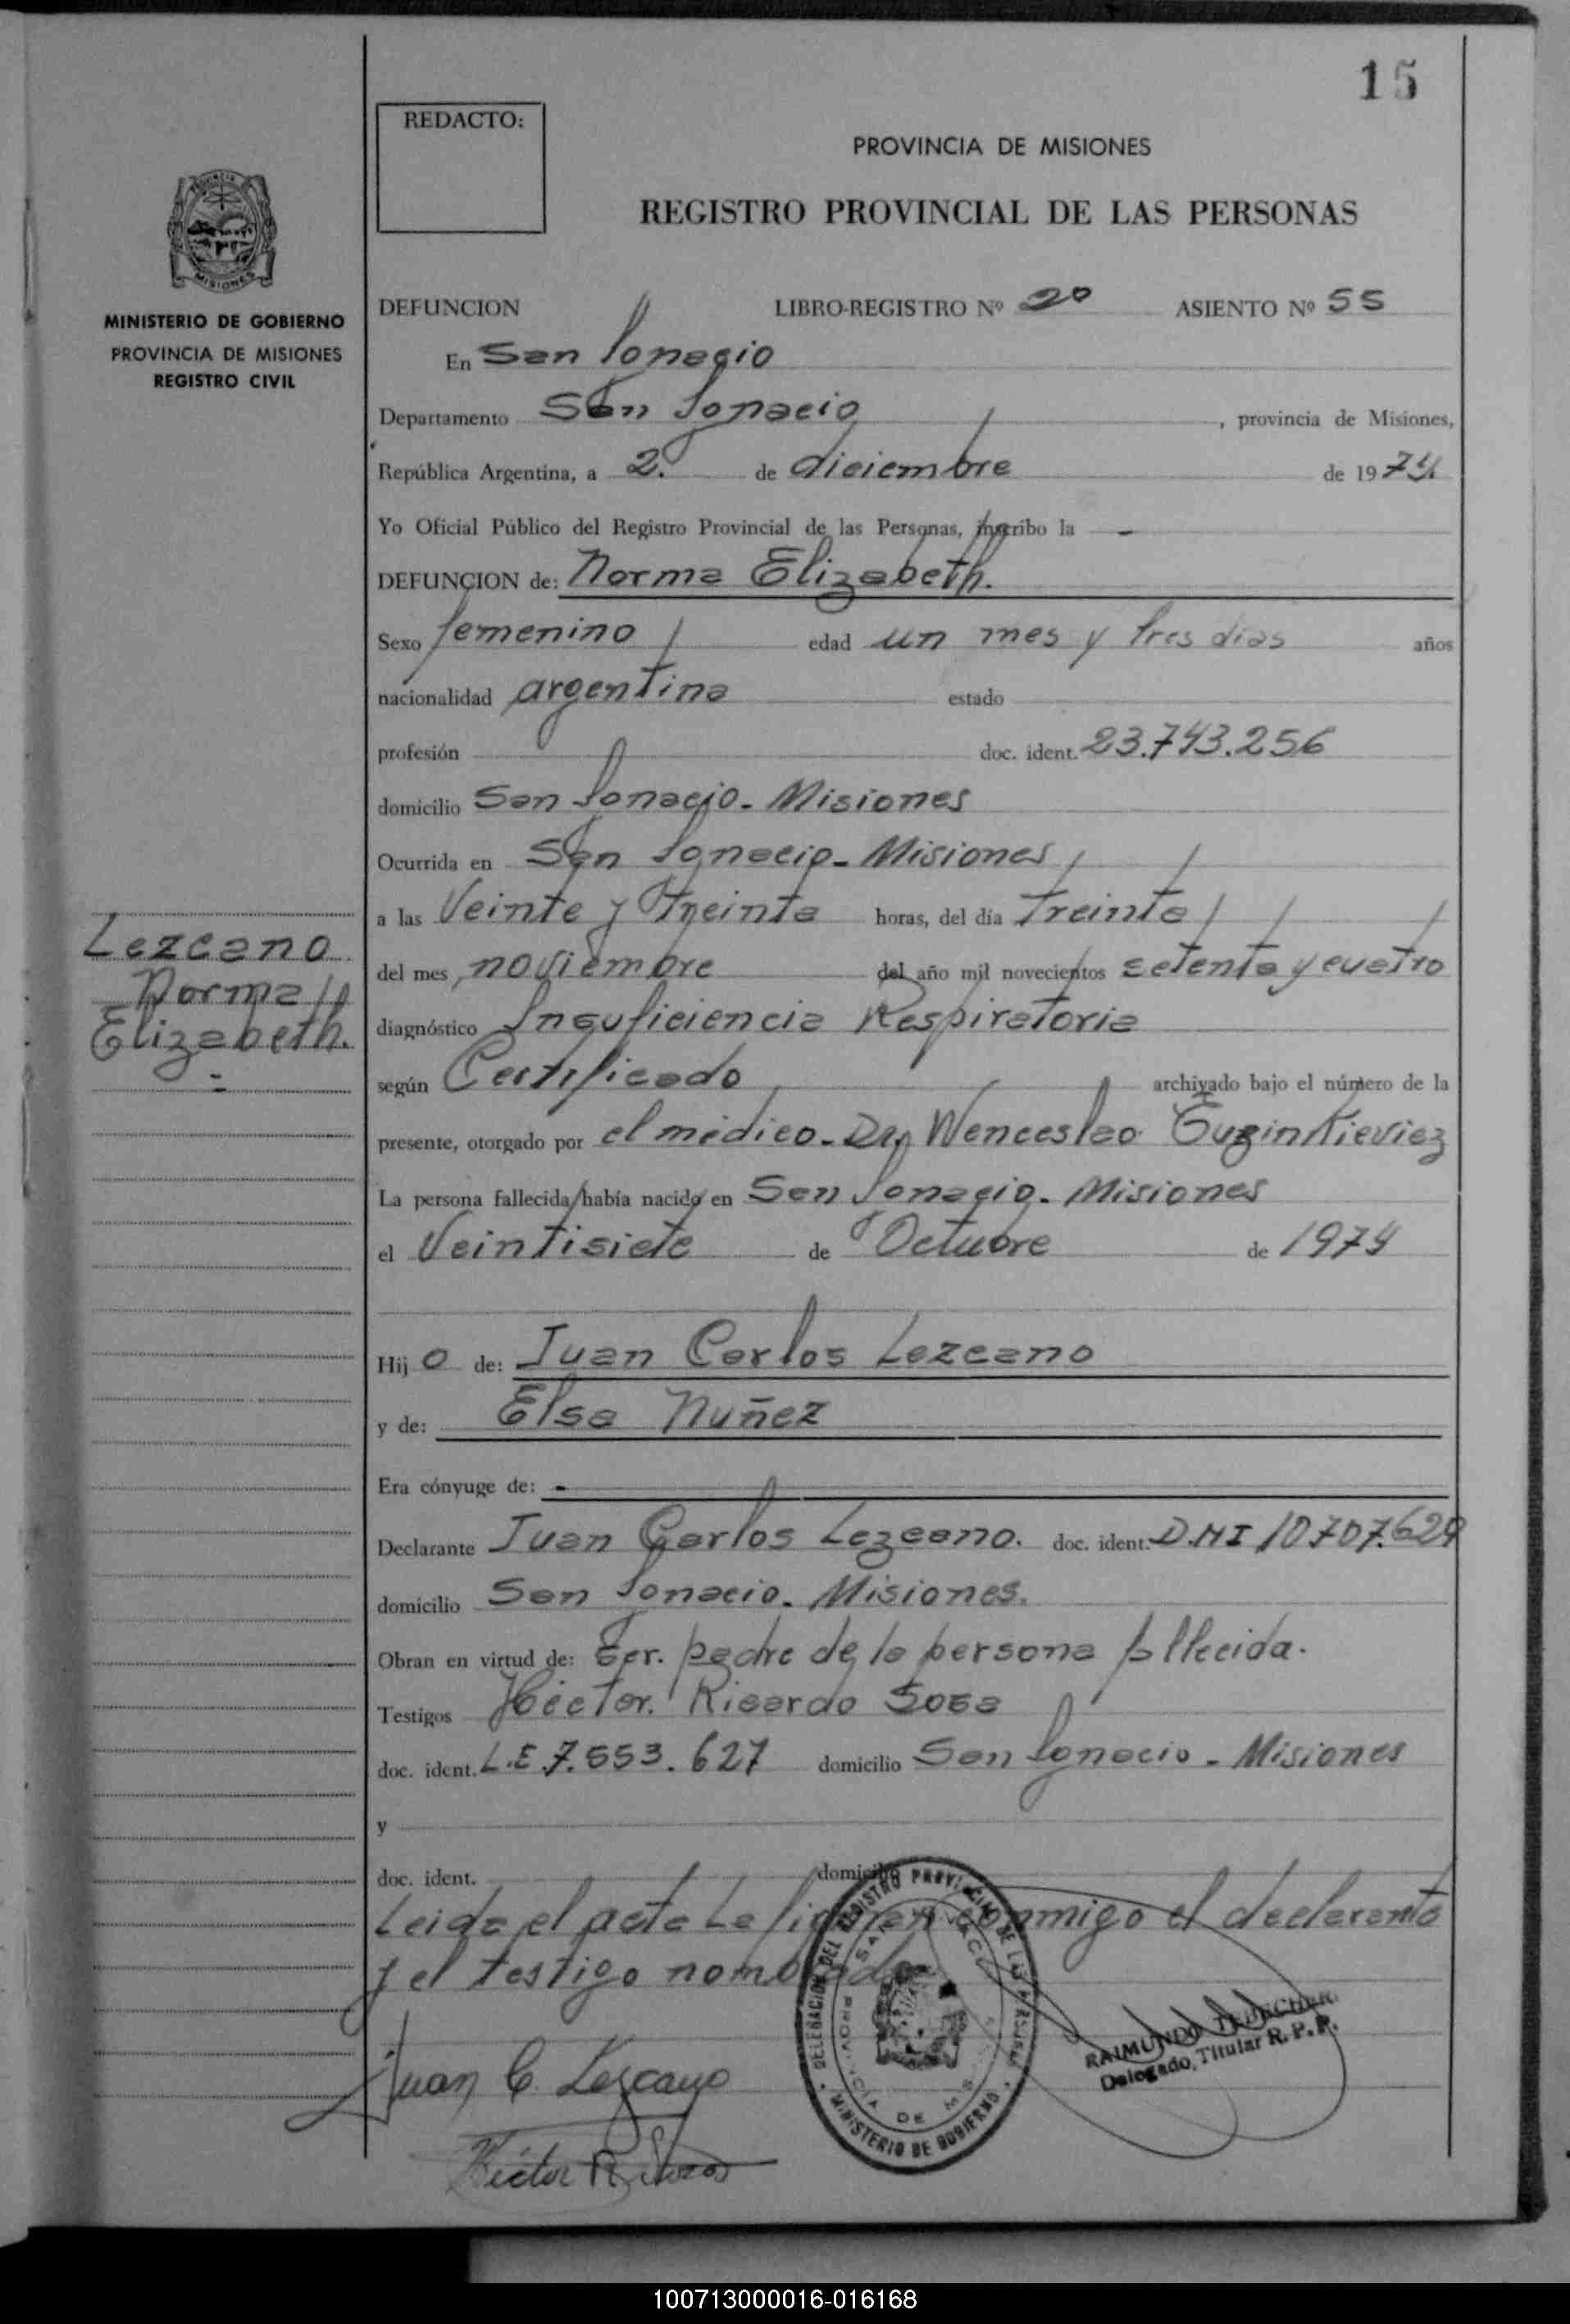 15
REDACTO:
PROVINCIA DE MISIONES
REGISTRO PROVINCIAL DE LAS PERSONAS
PROVINCIA
MISIONES
MINISTERIO DE GOBIERNO
PROVINCIA DE MISIONES
REGISTRO CIVIL
DEFUNCION LIBRO-REGISTRO Nº 2º ASIENTO Nº 55
En San Ignacio
Departamento San Ignacio, provincia de Misiones,
República Argentina, a 2. de diciembre de 1974
Yo Oficial Público del Registro Provincial de las Personas, inscribo la -
DEFUNCION de: Norma Elizabeth.
Sexo femenino edad un mes y tres dias años
nacionalidad argentina estado
profesión doc. ident. 23.743.256
domicilio San Ignacio - Misiones
Ocurrida en San Ignacio - Misiones
a las Veinte y Treinta horas, del día Treinta
del mes noviembre del año mil novecientos setenta y cuatro
diagnóstico Insuficiencia Respiratoria
según Certificado archivado bajo el número de la
presente, otorgado por el médico - Dr. Wenceslao
La persona fallecida había nacido en San Ignacio - Misiones
el Veintisiete de Octubre de 1974
Hijo de: Juan Carlos Lezcano
y de: Elsa Nuñez
Era cónyuge de: -
Declarante Juan Carlos Lezcano. doc. ident. D.N.I 10.707.629
domicilio San Ignacio - Misiones.
Obran en virtud de: ser padre de la persona fallecida.
Testigos Héctor Ricardo Sosa
doc. ident. L.E 7.553.627 domicilio San Ignacio - Misiones
y
doc. ident. domicilio
Leida el acta La firman conmigo el declarante
y el testigo nombrado
Lezcano
Norma
Elizabeth.
-
Juan C. Lezcano
Héctor R. Sosa
DELEGACION DEL REGISTRO PROVINCIAL DE LAS PERSONAS
MINISTERIO DE GOBIERNO
SAN IGNACIO
PROVINCIA DE MISIONES
RAIMUNDO
Delegado Titular R. P. P.
100713000016-016168